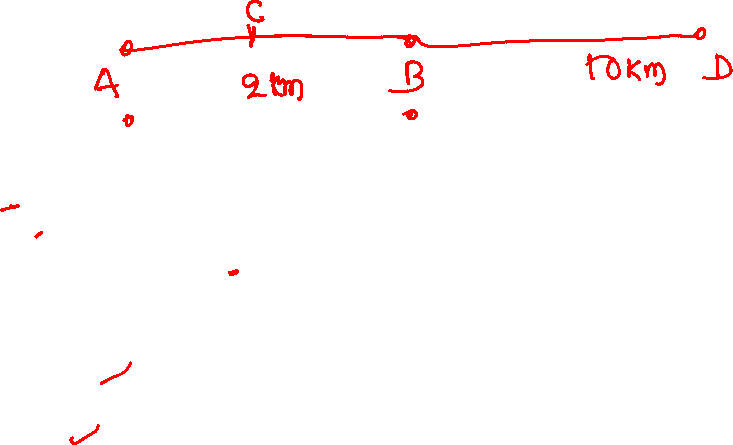 C
A 2 km B 10 km D